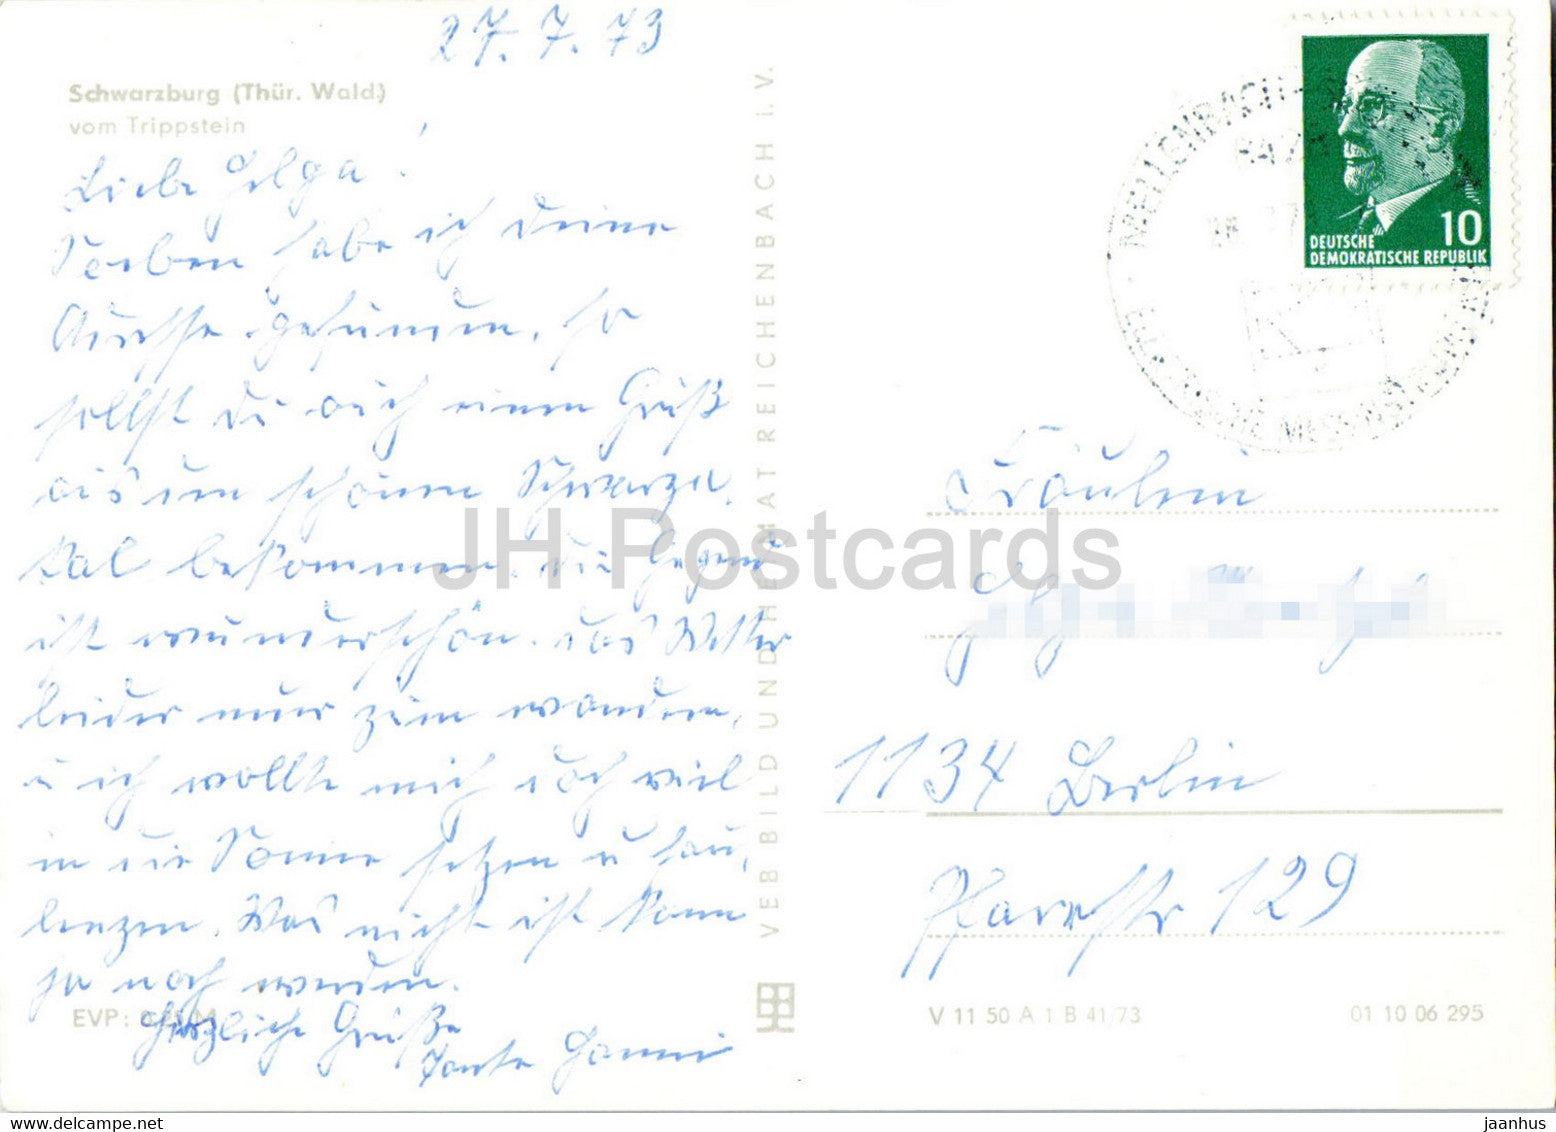 27.7.73
Schwarzburg (Thür. Wald)
vom Trippstein
Liebe Helga!
Soeben habe ich deine
Adresse gefunden, so
sollst du auch einen Gruß
aus dem schönen Schwarza-
tal bekommen. die Gegend
ist wunderschön. das Wetter
leider nur zum wandern,
u ich wollte mich doch viel
in die Sonne setzen u fau-
lenzen. Was nicht ist kann
ja noch werden.
Herzliche Grüße
Tante Hanni
EVP:
VEB BILD UND HEIMAT REICHENBACH I. V.
MELLENBACH-
10
DEUTSCHE
DEMOKRATISCHE REPUBLIK
Fräulein
1134 Berlin
Pfarrstr 129
V 11 50 A 1 B 41/73
01 10 06 295
JH Postcards
jaanhus